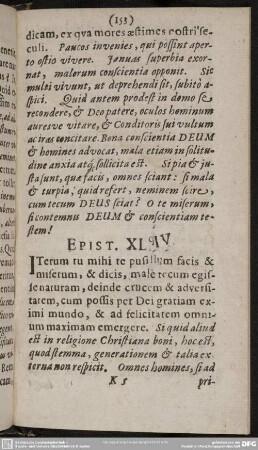 (153)
dicam, ex qva mores æstimes nostri se-
culi. Paucos invenies, qui possint aper-
to ostio vivere. Januas superbia exor-
nat, malorum conscientia opponit. Sic
multi vivunt, ut deprehendi sit, subitò a-
spici. Quid autem prodest in domo se
recondere, & Deo patere, oculos hominum
auresve vitare, & Conditoris sui vultum
ac iras concitare. Bona conscientia DEUM
& homines advocat, mala etiam in solitu-
dine anxia atq; sollicita est. Si pia & ju-
sta sunt, quæ facis, omnes sciant: si mala
& turpia, quid refert, neminem scire,
cum tecum DEUS sciat? O te miserum,
si contemnis DEUM & conscientiam te-
stem!
EPIST. XLIV
ITerum tu mihi te pusillum facis &
miserum, & dicis, malè tecum egis-
se naturam, deinde crucem & adversi-
tatem, cum possis per Dei gratiam ex-
imi mundo, & ad felicitatem omni-
um maximam emergere. Si quid aliud
est in religione Christiana boni, hoc est,
quod stemma, generationem & talia ex-
terna non respicit. Omnes homines, si ad
K 5 pri-
DFG